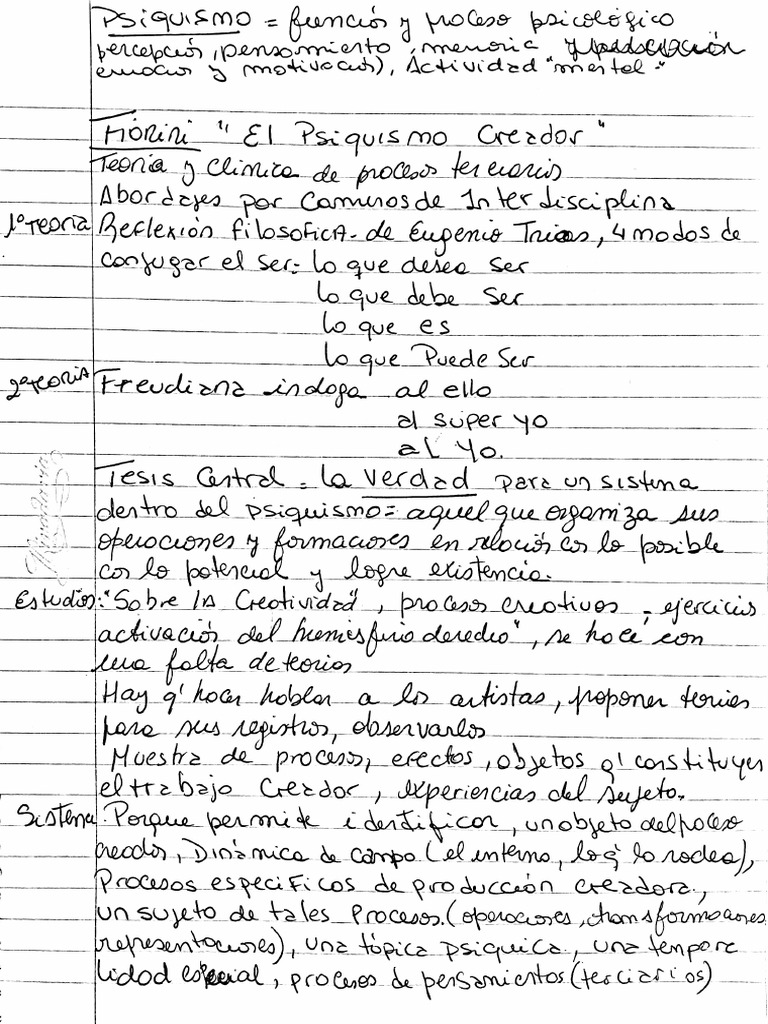 Psiquismo = función y proceso psicológico
percepción, pensamiento, memoria,
emoción y motivación), Actividad "mental"
Fiorini "El Psiquismo Creador"
Teoría y clínica de procesos terciarios
Abordajes por Caminos de Interdisciplina
1º Teoría Reflexión filosófica - de Eugenio Trías, 4 modos de
conjugar el ser = lo que desea ser
lo que debe Ser
lo que es
lo que Puede Ser
2º Teoría Freudiana indaga al ello
al super yo
al yo.
Tesis Central = la verdad para un sistema
dentro del psiquismo = aquel que organiza sus
operaciones y formaciones en relación con lo posible
con lo potencial y logre existencia.
Estudios: "Sobre la Creatividad", procesos creativos, ejercicios
activación del hemisferio derecho", se hace con
una falta de teorías
Hay q' hacer hablar a los artistas, proponer teorías
para sus registros, observarlos
Muestra de procesos, efectos, objetos q' constituyen
el trabajo Creador, experiencias del sujeto.
Sistema: Porque permite identificar, un objeto del proceso
creador, Dinámica de campo (el interno, lo q' lo rodea),
Procesos específicos de producción creadora,
un sujeto de tales Procesos. (operaciones, transformaciones
representaciones), una tópica psíquica, una tempora
lidad especial, procesos de pensamientos (terciarios)